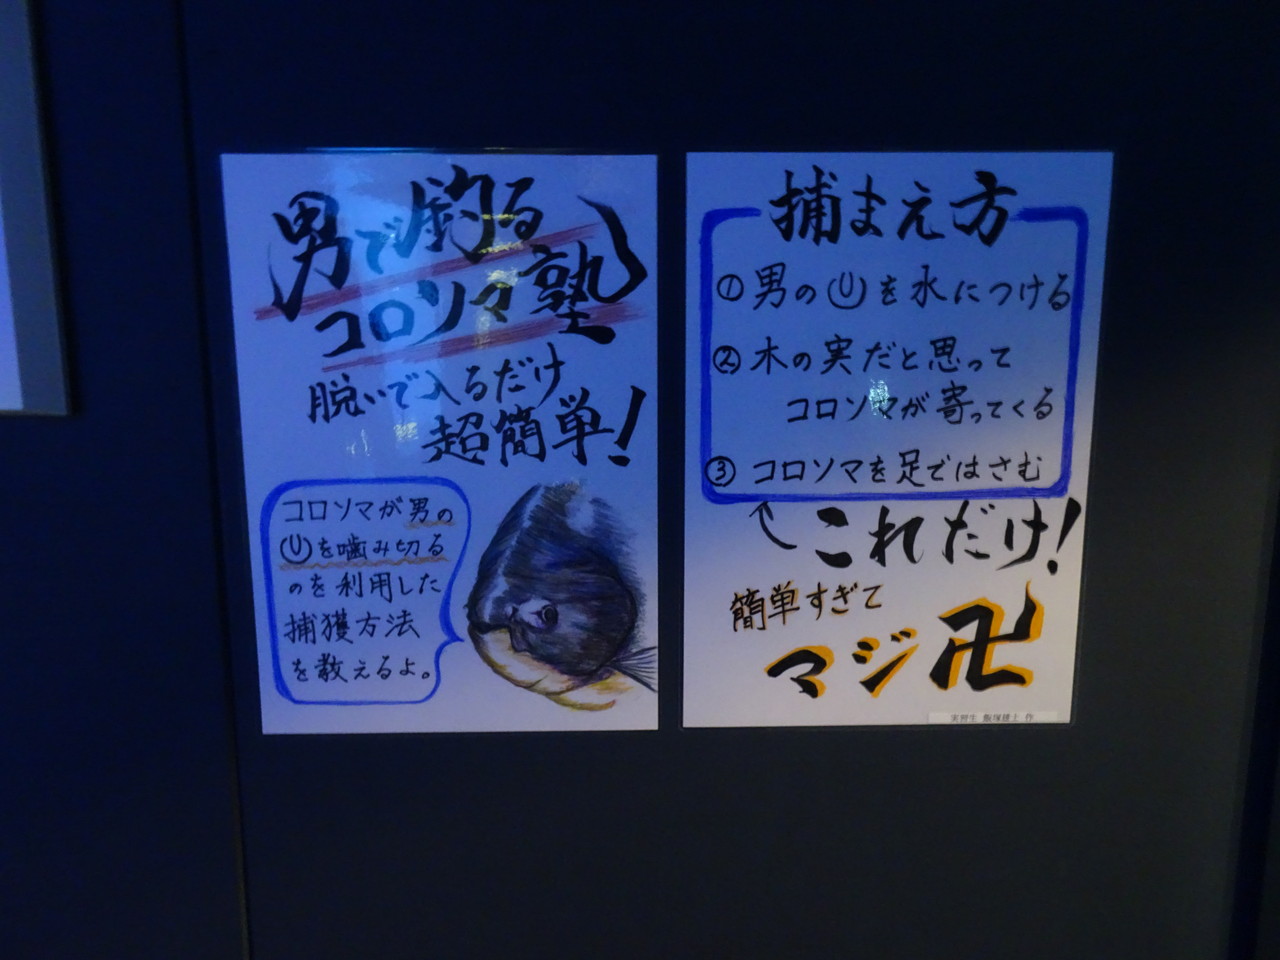 男で釣る
コロソマ塾
脱いで入るだけ
超簡単!
コロソマが男の
を噛み切る
のを利用した
捕獲方法
を教えるよ。
捕まえ方
①男のを水につける
②木の実だと思って
コロソマが寄ってくる
③コロソマを足ではさむ
これだけ!
簡単すぎて
マジ卍
実習生 飯塚健士 作